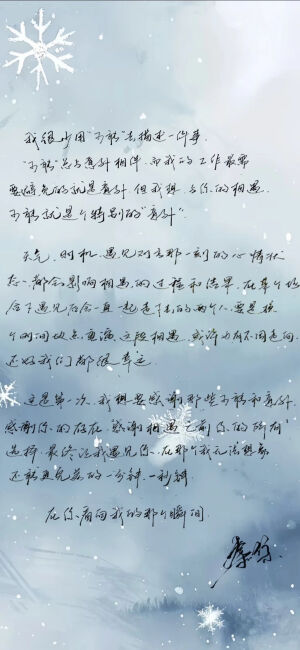 我很少用"可能"去描述一件事
"可能"总与意外相伴,而我的工作最需
要避免的就是意外.但我想,与你的相遇,
可能就是个特别的"意外".
天气、时机、遇见对方那一刻的心情状
态、都会影响相遇的过程和结果.在某个场
合下遇见后会一起走下去的两个人,要是换
个时间地点重演这段相遇,或许也有不同走向.
还好我们都很幸运.
这是第一次,我想要感谢那些可能和意外.
感谢你的存在,感谢相遇之前你的所有
选择,最终让我遇见你.在那个我无法想象
还能更完美的一分钟、一秒钟.
在你看向我的那个瞬间.